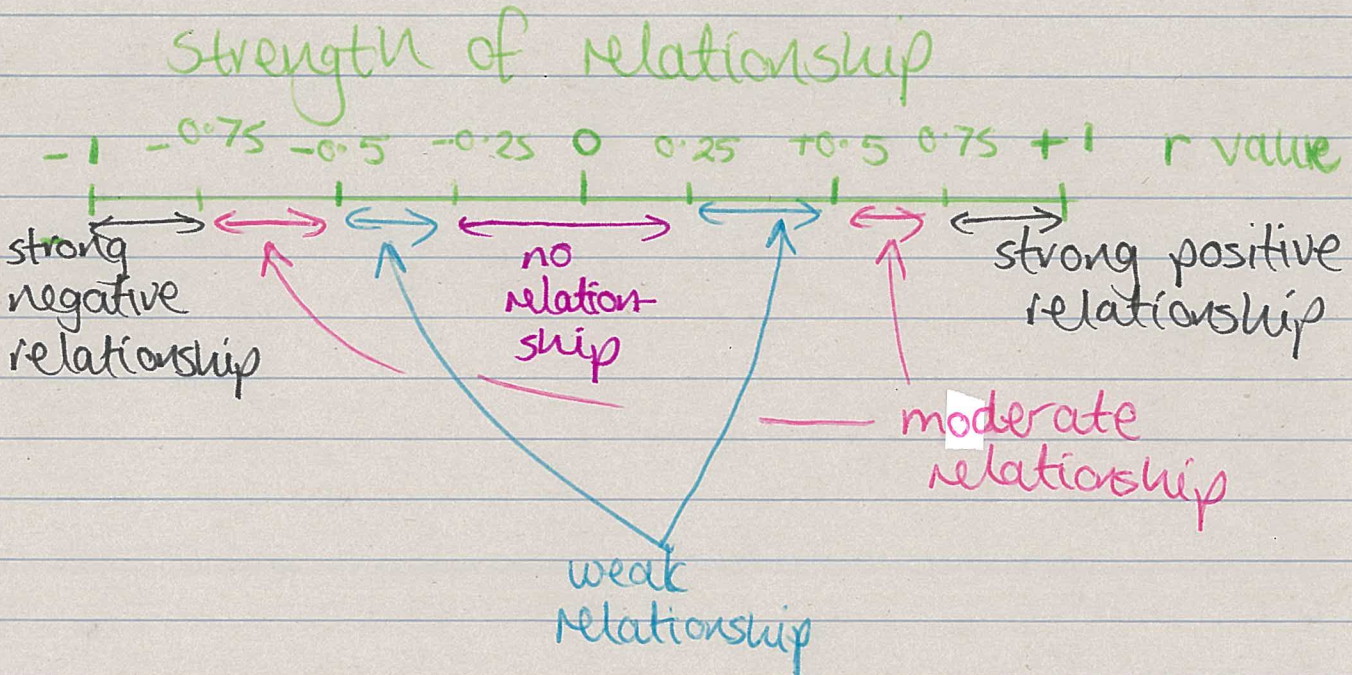 strength of relationship
-1 -0.75 -0.5 -0.25 0 0.25 +0.5 0.75 +1 r value
strong
negative
relationship
no
relation-
ship
strong positive
relationship
moderate
relationship
weak
relationship